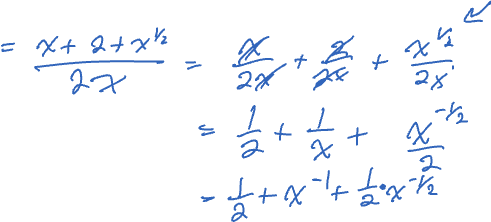 = (x + 2 + x^1/2)/(2x) = x/(2x) + 2/(2x) + x^1/2/(2x)
= 1/2 + 1/x + x^-1/2/2
= 1/2 + x^-1 + 1/2 • x^-1/2